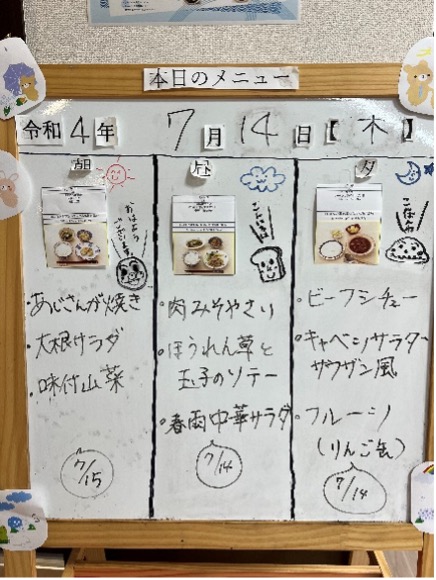 本日のメニュー
令和4年 7月14日【木】
朝
おはようございます
・あじさんが焼き
・大根サラダ
・味付山菜
7/15
昼
こんにちは
・肉みそやさい
・ほうれん草と
玉子のソテー
・春雨中華サラダ
7/14
夕
こんばんは
・ビーフシチュー
・キャベツサラダ
サウザン風
・フルーツ
(りんご缶)
7/14